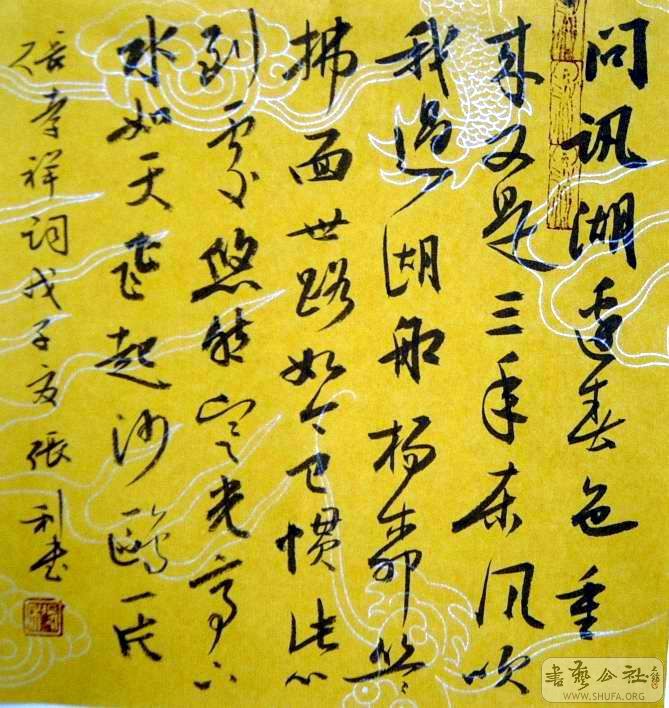 问讯湖边春色重
来又是三年东风吹
我过湖船杨柳丝丝
拂面世路如今已惯此心
到处悠然寒光亭下
水如天飞起沙鷗一片
张孝祥词戊子夏張利书
書藝公社
WWW.SHUFA.ORG